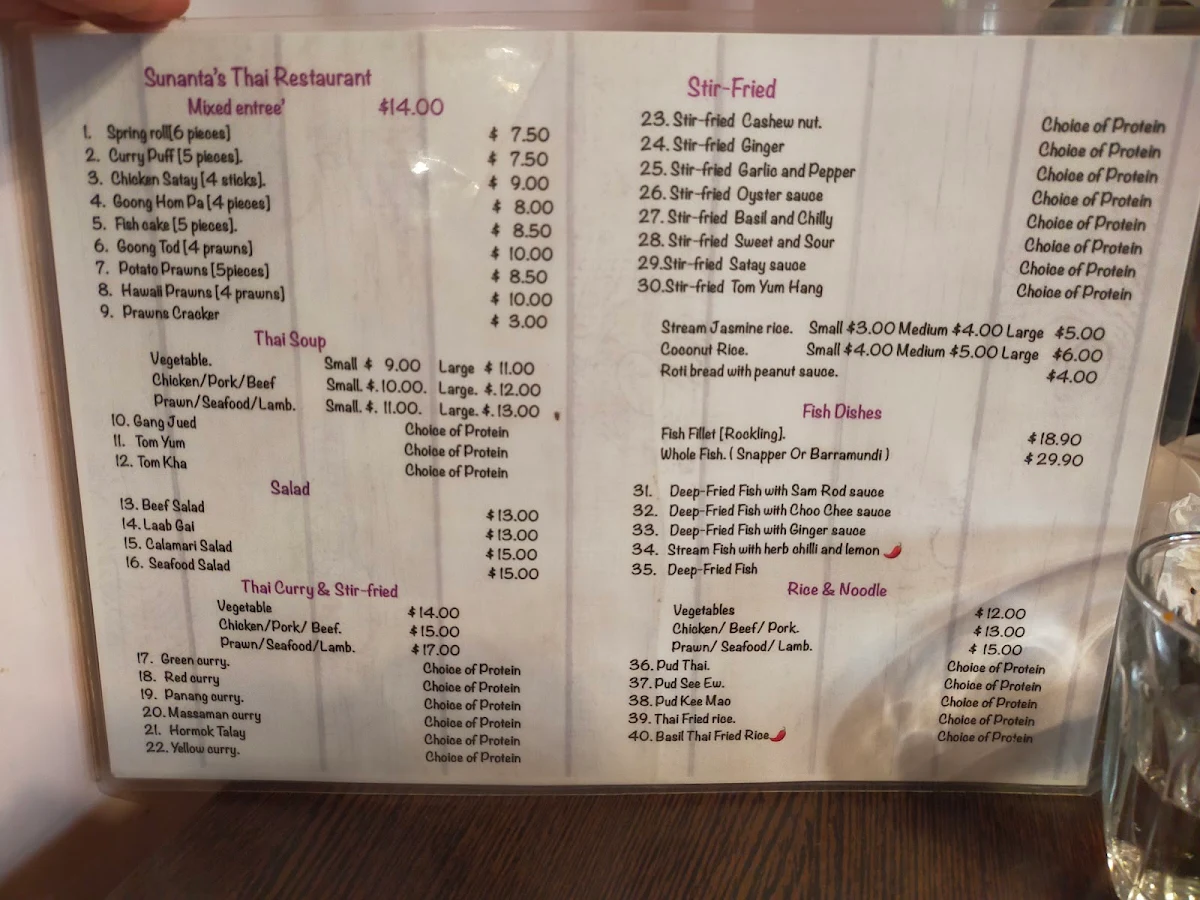 Sunanta's Thai Restaurant
Mixed entree' $14.00
1. Spring roll[6 pieces] $ 7.50
2. Curry Puff [5 pieces]. $ 7.50
3. Chicken Satay [4 sticks]. $ 9.00
4. Goong Hom Pa [4 pieces] $ 8.00
5. Fish cake [5 pieces]. $ 8.50
6. Goong Tod [4 prawns] $ 10.00
7. Potato Prawns [5pieces] $ 8.50
8. Hawaii Prawns [4 prawns] $ 10.00
9. Prawns Cracker $ 3.00
Thai Soup
Vegetable. Small $ 9.00 Large $ 11.00
Chicken/Pork/Beef Small. $. 10.00. Large. $. 12.00
Prawn/Seafood/Lamb. Small. $. 11.00. Large. $. 13.00
10. Gang Jued Choice of Protein
11. Tom Yum Choice of Protein
12. Tom Kha Choice of Protein
Salad
13. Beef Salad $ 13.00
14. Laab Gai $ 13.00
15. Calamari Salad $ 15.00
16. Seafood Salad $ 15.00
Thai Curry & Stir-fried
Vegetable $ 14.00
Chicken/Pork/ Beef. $ 15.00
Prawn/Seafood/Lamb. $ 17.00
17. Green curry. Choice of Protein
18. Red curry Choice of Protein
19. Panang curry. Choice of Protein
20. Massaman curry Choice of Protein
21. Hormok Talay Choice of Protein
22. Yellow curry. Choice of Protein
Stir-Fried
23. Stir-fried Cashew nut. Choice of Protein
24. Stir-fried Ginger Choice of Protein
25. Stir-fried Garlic and Pepper Choice of Protein
26. Stir-fried Oyster sauce Choice of Protein
27. Stir-fried Basil and Chilly Choice of Protein
28. Stir-fried Sweet and Sour Choice of Protein
29.Stir-fried Satay sauce Choice of Protein
30.Stir-fried Tom Yum Hang Choice of Protein
Stream Jasmine rice. Small $3.00 Medium $4.00 Large $5.00
Coconut Rice. Small $4.00 Medium $5.00 Large $6.00
Roti bread with peanut sauce. $4.00
Fish Dishes
Fish Fillet [Rockling]. $ 18.90
Whole Fish. ( Snapper Or Barramundi ) $ 29.90
31. Deep-Fried Fish with Sam Rod sauce
32. Deep-Fried Fish with Choo Chee sauce
33. Deep-Fried Fish with Ginger sauce
34. Stream Fish with herb chilli and lemon
35. Deep-Fried Fish
Rice & Noodle
Vegetables $ 12.00
Chicken/ Beef/ Pork. $ 13.00
Prawn/ Seafood/ Lamb. $ 15.00
36. Pud Thai. Choice of Protein
37. Pud See Ew. Choice of Protein
38. Pud Kee Mao Choice of Protein
39. Thai Fried rice. Choice of Protein
40. Basil Thai Fried Rice Choice of Protein